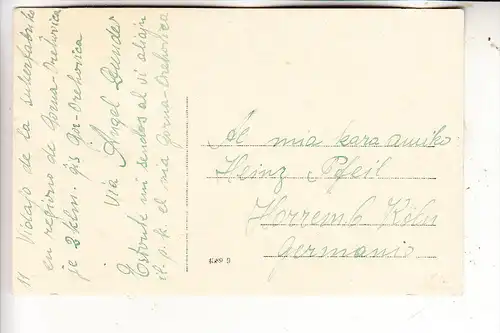 11 Vidajo de la sukerfabriko
en regiono de Gorna-Orehovica
je 2 klm. ĝis Gor-Orehovica
Via Angel Dunder
Estonte mi sendos al vi aliajn
il. p. k. el nia Gorna-Orehovica
Al mia kara amiko
Heinz Pfeil
Horremb. Köln
Germanio